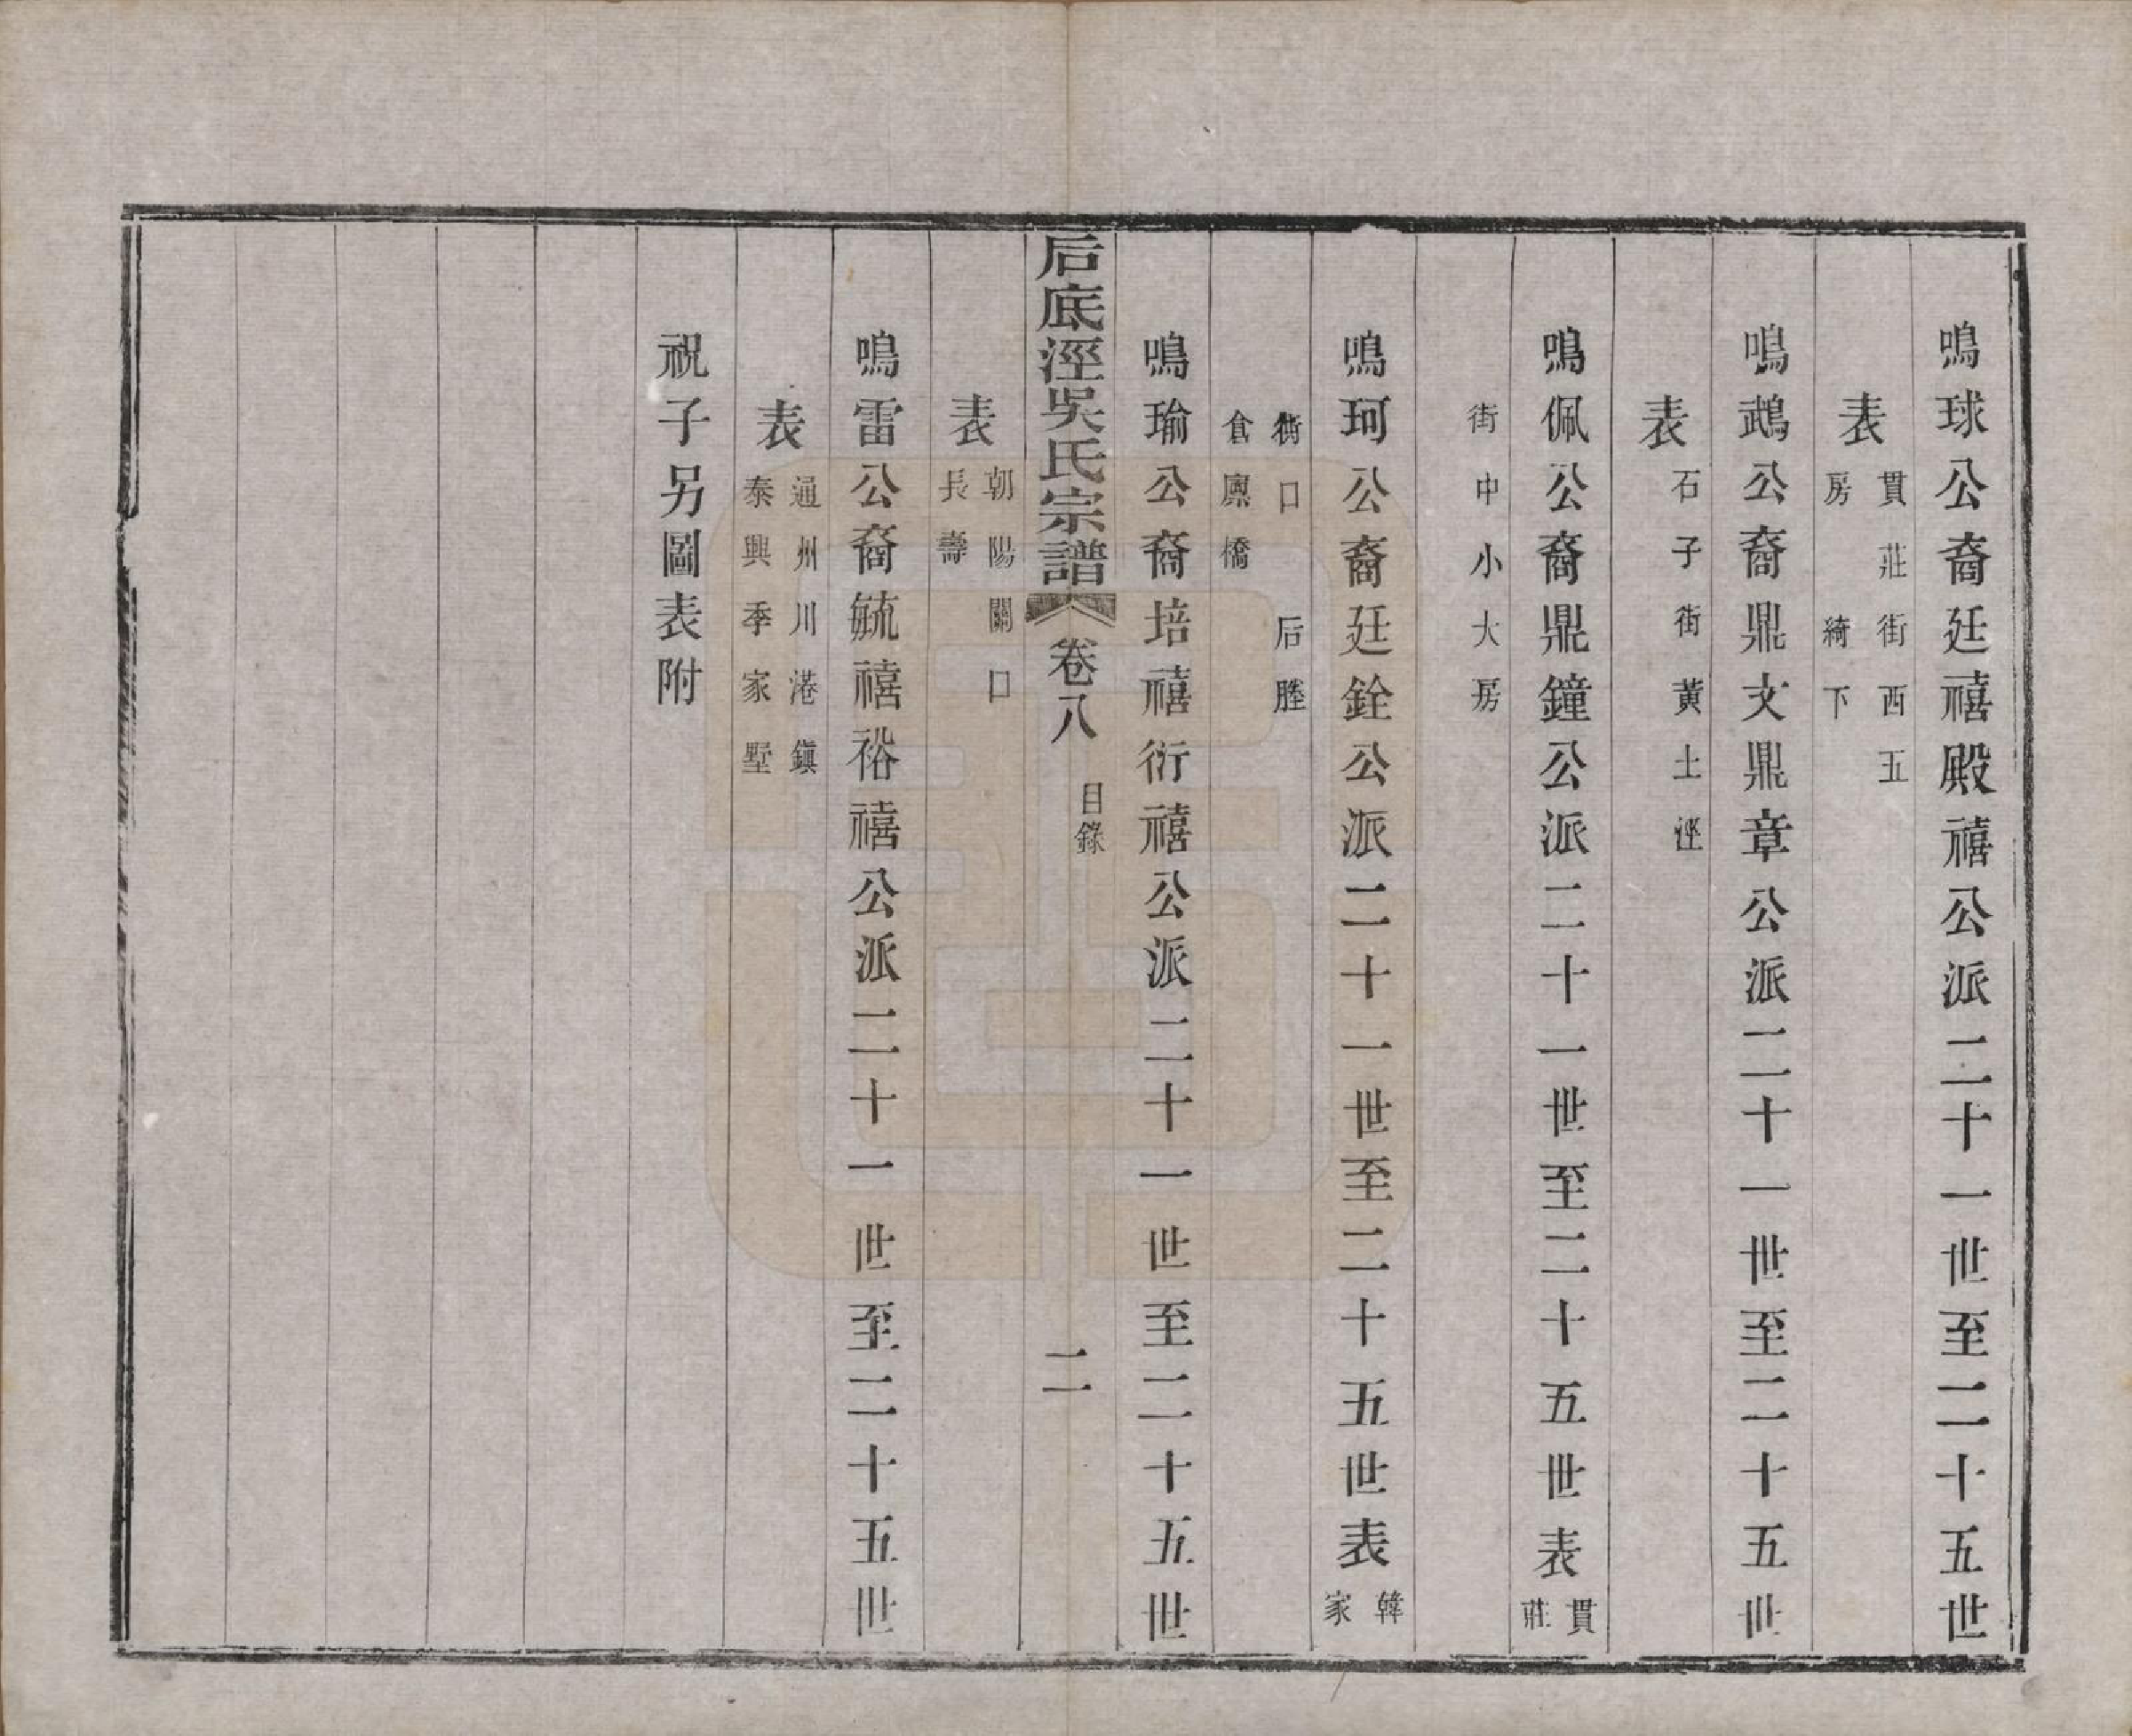 鳴球公裔廷禧殿禧公派二十一世至二十五世
表
貫莊街西五
房 綺下
鳴鵡公裔鼎文鼎章公派二十一世至二十五世
表
石子街黄土涇
鳴佩公裔鼎鐘公派二十一世至二十五世表
貫
莊
街中小大房
鳴珂公裔廷銓公派二十一世至二十五世表
韓
家
衖口 后塍
倉廪橋
鳴瑜公裔培禧衍禧公派二十一世至二十五世
后底涇吳氏宗譜
卷八
目錄
二
表
朝陽關口
長壽
鳴雷公裔毓禧裕禧公派二十一世至二十五世
表
通州川港鎭
泰興季家墅
祝子另圖表附